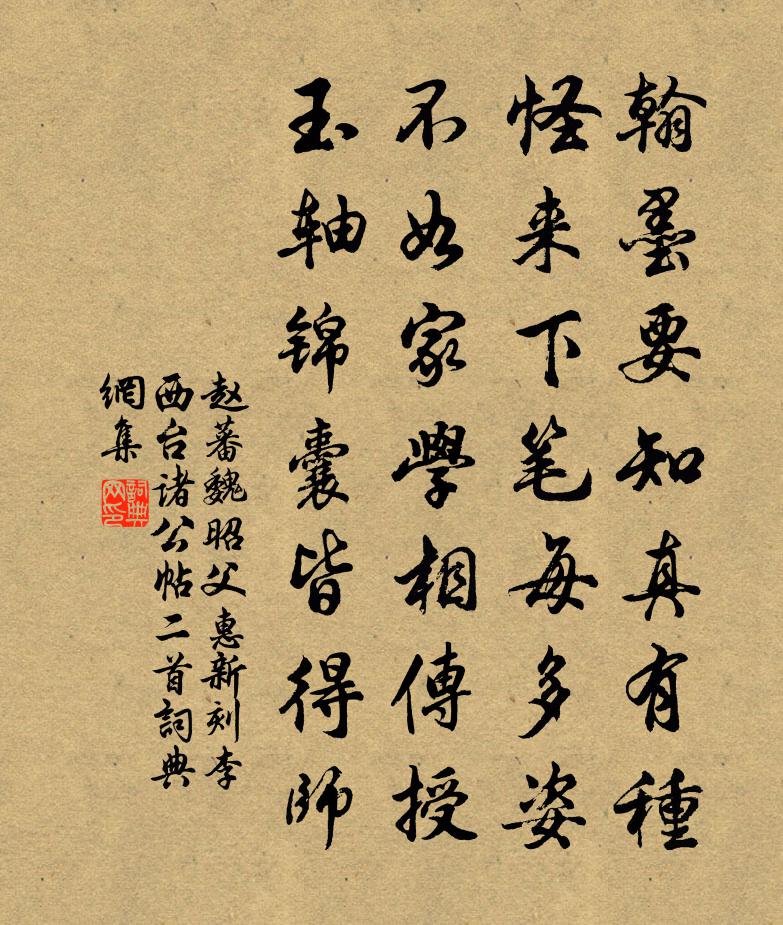 翰墨要知真有種
怪来下笔每多姿
不如家學相傳授
玉轴锦囊皆得師
赵蕃魏昭父惠新刻李
西台诸公帖二首詞典
網集
詞典
网印